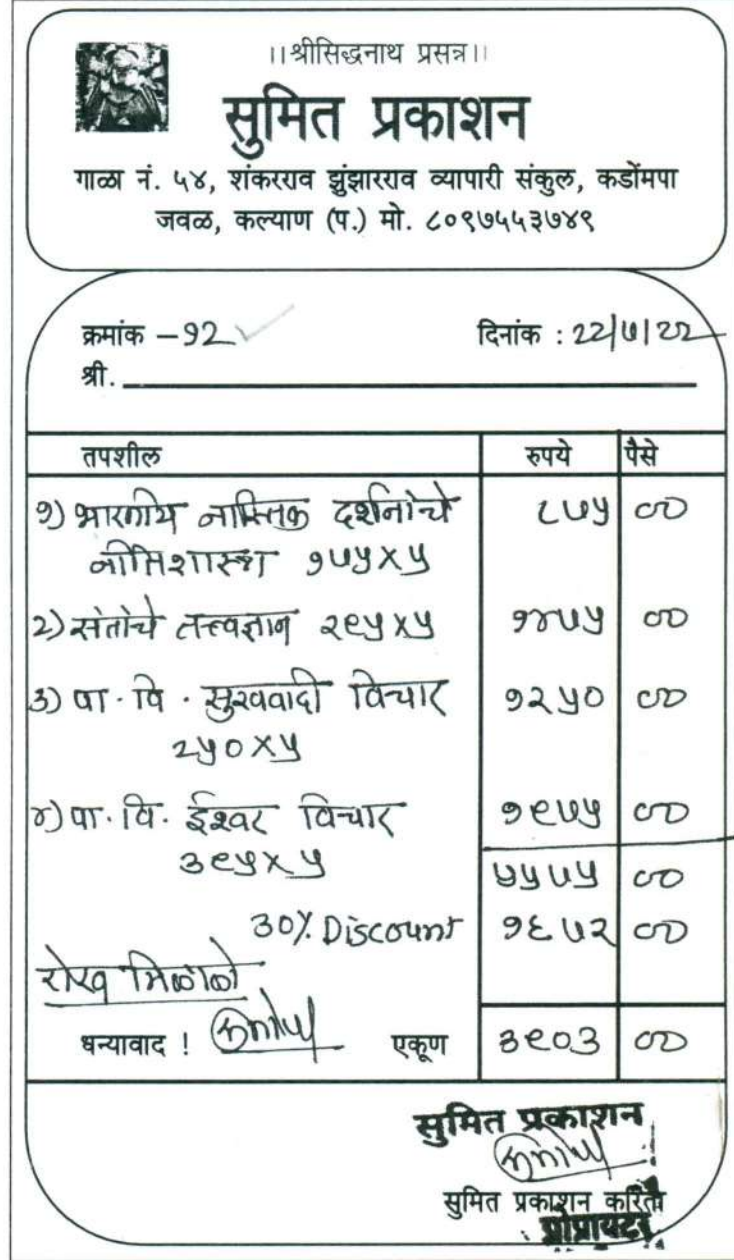 ।।श्रीसिद्धनाथ प्रसन्न।।
सुमित प्रकाशन
गाळा नं. ५४, शंकरराव झुंझारराव व्यापारी संकुल, कडोंमपा
जवळ, कल्याण (प.) मो. ८०९७५५३७४९
क्रमांक – १२ दिनांक : २२/७/२२
श्री.
तपशील रुपये पैसे
१) भारतीय नास्तिक दर्शनांचे ८७५ ००
नीतिशास्त्र १७५X५
२) संतांचे तत्त्वज्ञान २९५X५ १४७५ ००
३) पा. वि. सुखवादी विचार १२५० ००
२५०X५
४) पा. वि. ईश्वर विचार १९७५ ००
३९५X५
५५७५ ००
30% Discount १६७२ ००
रोख मिळाले
धन्यावाद ! एकूण ३९०३ ००
सुमित प्रकाशन
सुमित प्रकाशन करिता
प्रोप्रायटर